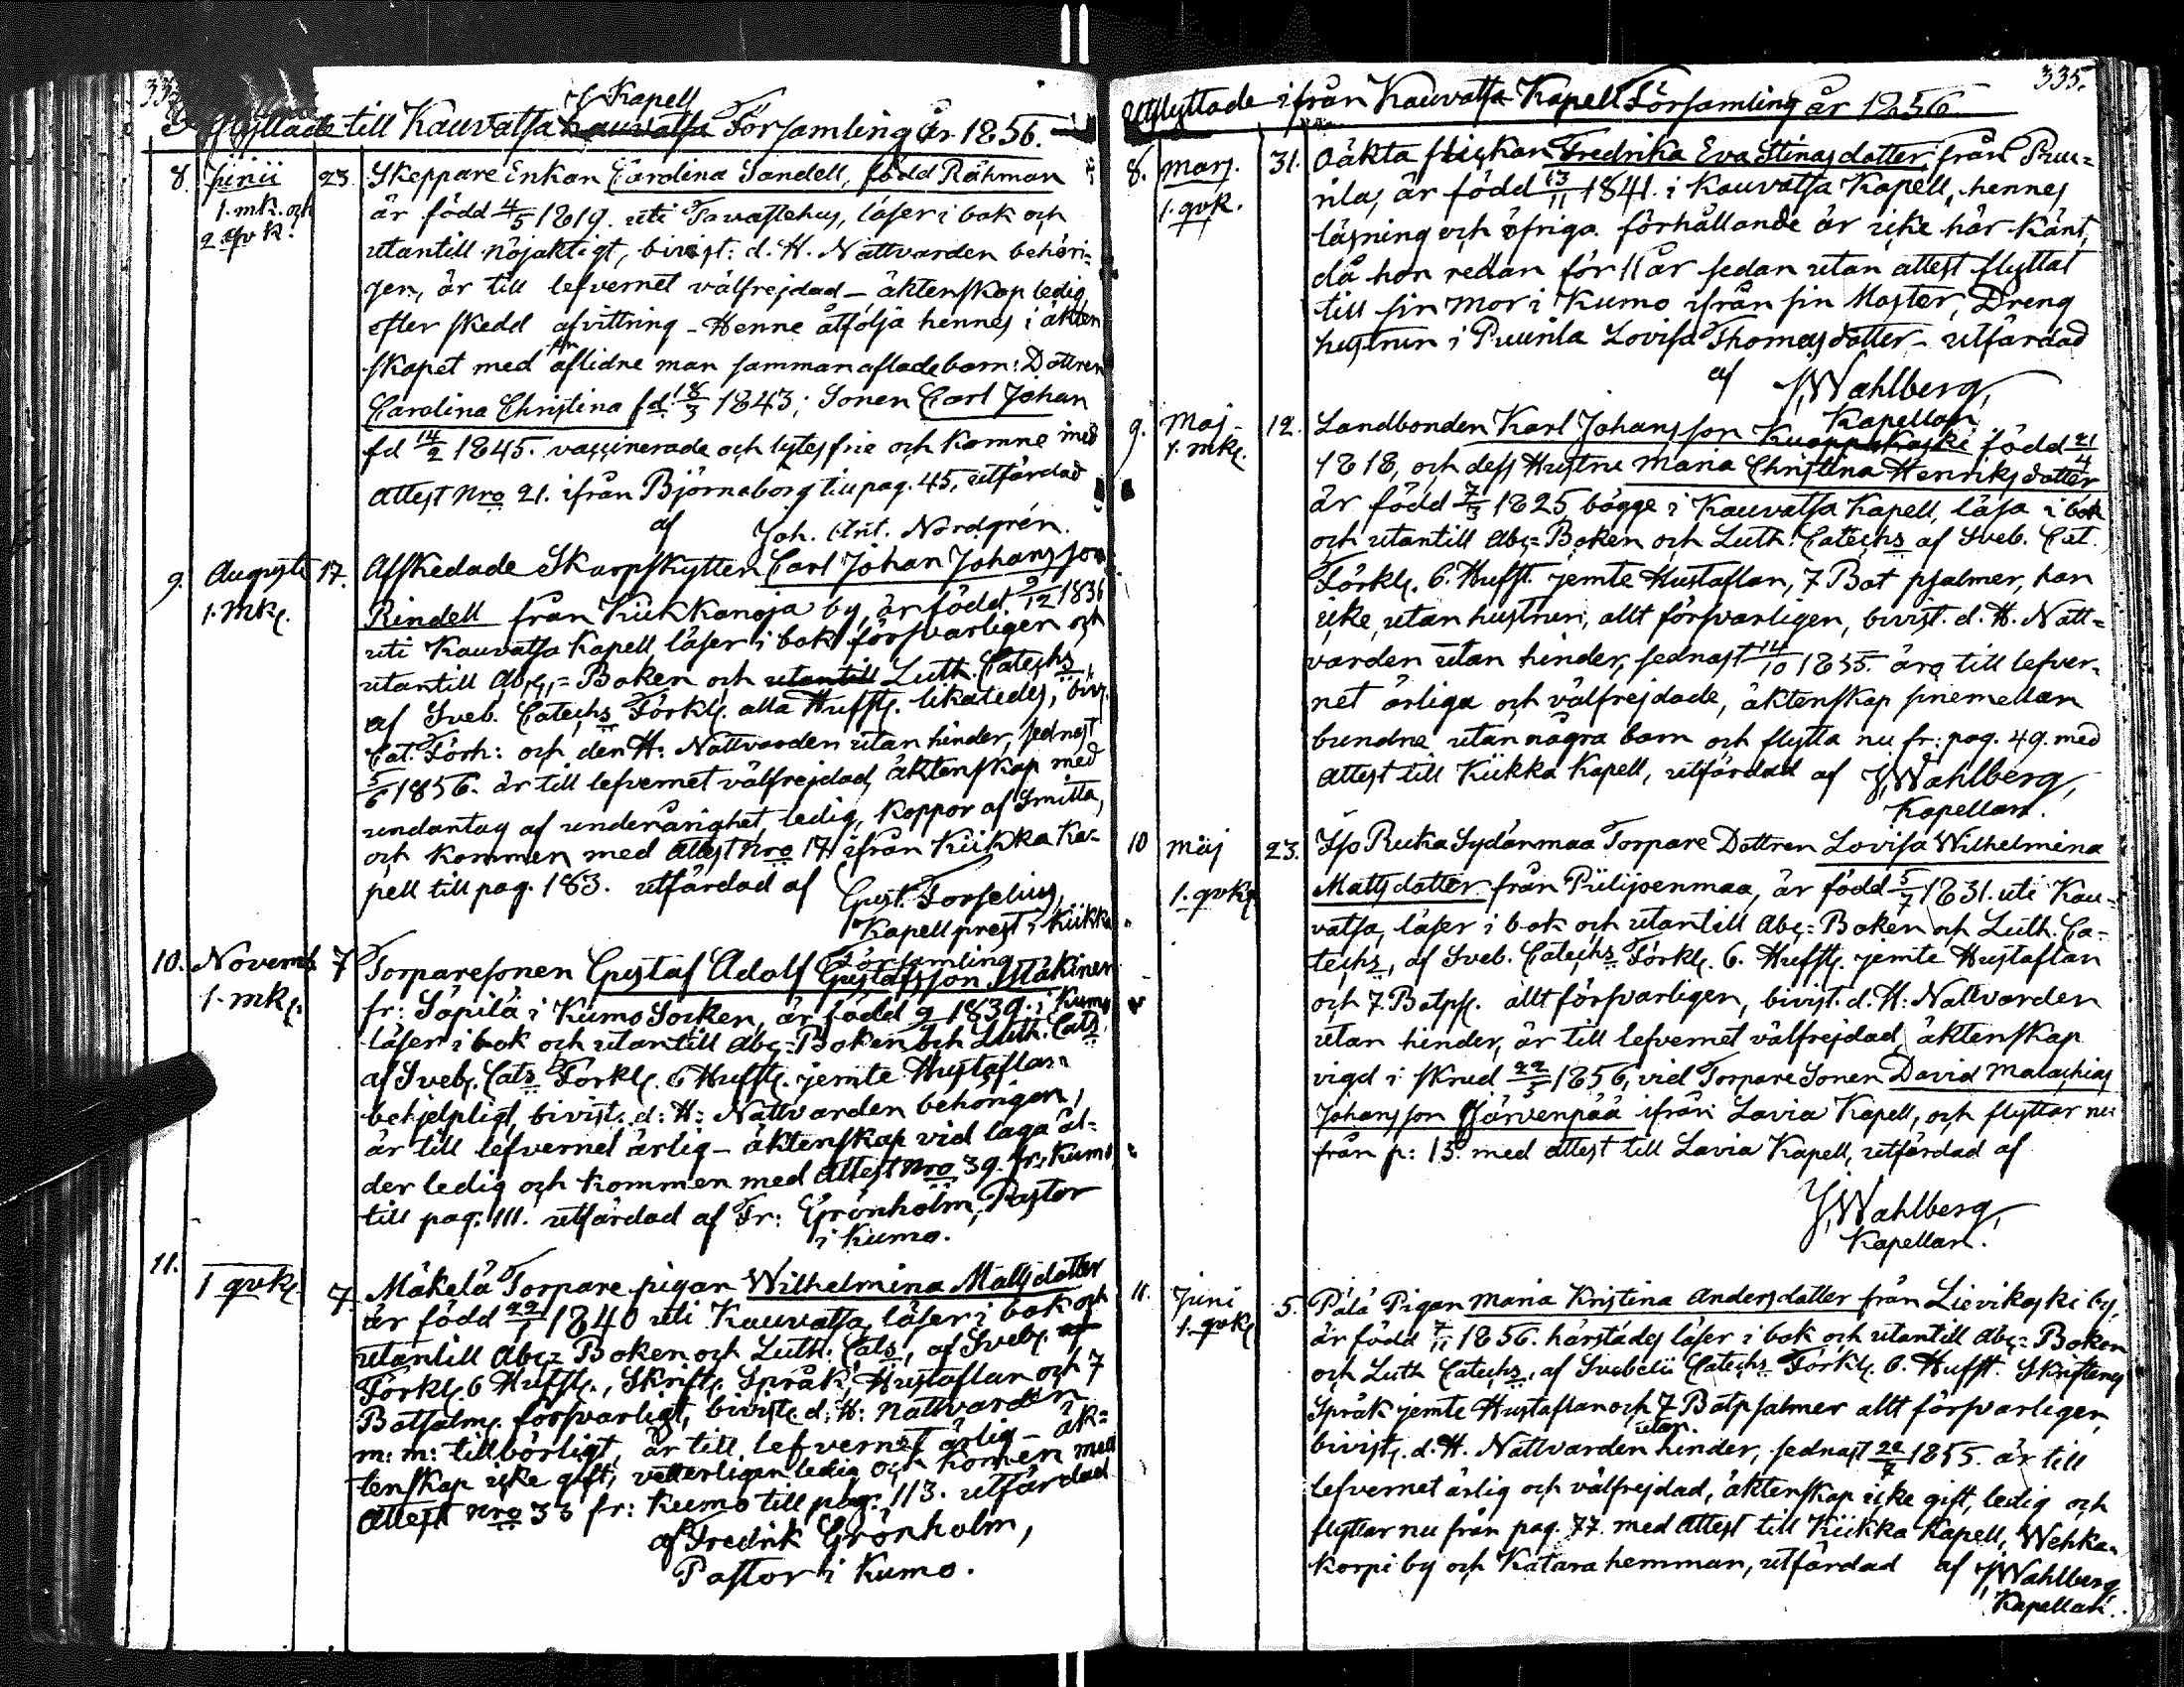 33
Kapell
flyttade till Kauvatsa Kauvatsa Församling år 1856.
8. junii 23. Skeppare Enkan Carolina Sandell, född Råhman
1. mk. och är född 4/5 1819. uti Tavastehus, läser i bok och
2. qvk. utantill nöjaktigt, bivist: d. H. Nattvarden behöri-
gen, är till lefvernet välfrejdad – äktenskap ledig
efter skedd afvittring – Henne åtfölja hennes i äkten
skapet med aflidne man sammanaflade barn: Dottren
Carolina Christina fd. 18/3 1843; Sonen Carl Johan
fd 14/2 1845. vaccinerade och lytesfrie och komne med
attest Nro 21. ifrån Björneborg till pag. 45, utfärdad
af Joh. Ant. Nordgrén.
9. Augusti 17. Afskedade Skarpskytten Carl Johan Johansson
1. Mk. Rindell från Kiikkanoja by, är född 9/12 1836
uti Kauvatsa Kapell, läser i bok försvarligen och
utantill Abc-Boken och utantill Luth. Catechs
af Sveb. Catechs Förkl. alla Hufst. likaledes, biv.
Cat. Förh: och den H: Nattvarden utan hinder, sednast
5/6 1856. är till lefvernet välfrejdad, äktenskap med
undantag af underårighet ledig, koppor af Smitta,
och kommen med Attest Nro 17. ifrån Kiikka Ka-
pell till pag. 183. utfärdad af Gust. Forselius,
Kapell prest i Kiikka
Församling
10. Novemb. 7 Torparesonen Gustaf Adolf Gustafsson Mäkinen
1. mk. fr: Säpilä i Kumo Socken, är född 9 1839. i Kumo
läser i bok och utantill Abc-Boken och Luth. Cats.
af Sveb. Cats Förkl. 6 Hufst. jemte Hustaflan
behjelpligt, bivist. d: H: Nattvarden behörigen,
är till lefvernet ärlig – äktenskap vid laga ål-
der ledig och kommen med Attest Nro 39. fr: Kumo
till pag. 111. utfärdad af Fr: Grönholm, Pastor
i Kumo.
11. 1 qvk. 7 Mäkelä Torpare pigan Wilhelmina Matsdotter
är född 22/1 1840 uti Kauvatsa, läser i bok och
utantill Abc-Boken och Luth. Cats, af Sveb. af
Förkl. 6 Hufst., Skrift. Språk, Hustaflan och 7
Botpsalm. försvarligt, bivist. d: H: Nattvarden
m: m: tillbörligt, är till lefvernet ärlig – äk-
tenskap icke gift, vetterligen ledig och komen med
Attest Nro 33 fr: Kumo till pag. 113. utfärdad
af Fredrik Grönholm,
Pastor i Kumo.
335.
Utflyttade ifrån Kauvatsa Kapell Församling år 1856.
8. Mars. 31. Oäkta flickan Fredrika Eva Stinasdotter från Puu-
1. qvk. rila, är född 13/11 1841. i Kauvatsa Kapell, hennes
läsning och öfriga förhållande är icke här känt,
då hon redan för 11 år sedan utan attest flyttat
till sin mor i Kumo ifrån sin Moster, Dreng
hustrun i Puurila Lovisa Thomasdotter – utfärdad
af J, Wahlberg,
Kapellan
9. Maj 12. Landbonden Karl Johansson Kuoppakoski född 21/4
1. mk. 1818, och dess Hustru Maria Christina Henriksdotter
är född 7/3 1825, bägge i Kauvatsa Kapell, läsa i bok
och utantill Abc-Boken och Luth. Catechs af Sveb. Cat.
Förkl. 6. Hufst. jemte Hustaflan, 7 Bot psalmer, han
icke, utan hustrun, allt försvarligen, bivist. d. H. Natt-
varden utan hinder, sednast 14/10 1855. äro till lefver-
net ärliga och välfrejdade, äktenskap sinemellan
bundne utan några barn och flytta nu fr: pag. 49. med
Attest till Kiikka Kapell, utfärdad af J, Wahlberg,
Kapellan.
10 Maj 23. Iso Ruka Sydänmaa Torpare Dottren Lovisa Wilhelmina
1. qvk. Matsdotter från Piilijoenmaa, är född 5/7 1831. uti Kau-
vatsa, läser i bok och utantill Abc-Boken och Luth. Ca-
techs, af Sveb. Catechs Förkl. 6. Hufst. jemte Hustaflan
och 7. Botps. allt försvarligen, bivist. d. H: Nattvarden
utan hinder, är till lefvernet välfrejdad, äktenskap
vigd i skrud 22/5 1856, vid Torpare Sonen David Malachias
Johansson Järvenpää ifrån Lavia Kapell, och flyttar nu
från p: 15. med attest till Lavia Kapell, utfärdad af
J, Wahlberg,
Kapellan.
11. Juni 5. Pälä Pigan Maria Kristina Andersdotter från Lievikoski by,
1. qvk. är född 7/11 1856. härstädes läser i bok och utantill Abc-Boken
och Luth Catechs, af Svebelii Catechs Förkl. 6. Hufst. Skriftens
Språk jemte Hustaflan och 7 Botpsalmer allt försvarligen,
utan
bivist. d. H. Nattvarden hinder, sednast 22/7 1855. är till
lefvernet ärlig och välfrejdad, äktenskap icke gift, ledig och
flyttar nu från pag. 77. med Attest till Kiikka Kapell, Wehka-
korpi by och Katara hemman, utfärdad af J, Wahlberg
Kapellan.